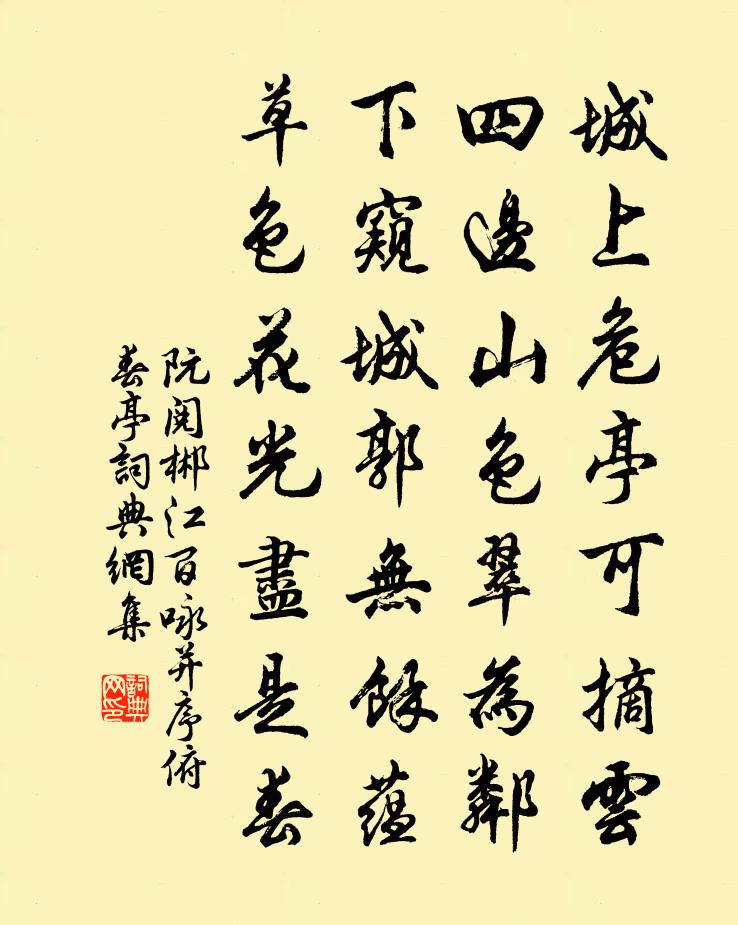 城上危亭可摘雲
四邊山色翠為鄰
下窺城郭無餘蘊
草色花光盡是春
阮閱郴江百咏并序俯
春亭詞典網集
詞典网印